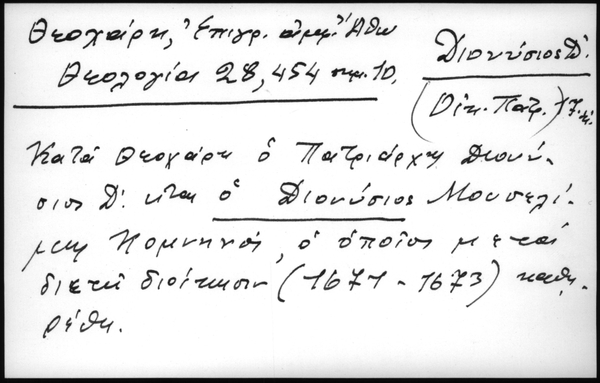 Θεοχάρη, Ἐπιγρ. Ἄθω
Θεολογία 28, 454 σημ. 10.
Διονύσιος Δ΄.
(Οἰκ. Πατρ.) 17.
Κατά Θεοχάρη ὁ Πατριάρχης Διονύ-
σιος Δ΄. εἶναι ὁ Διονύσιος Μουσελί-
μης Κομνηνός, ὁ ὁποῖος μετά
διετῆ διοίκησιν (1671 - 1673) καθη-
ρέθη.